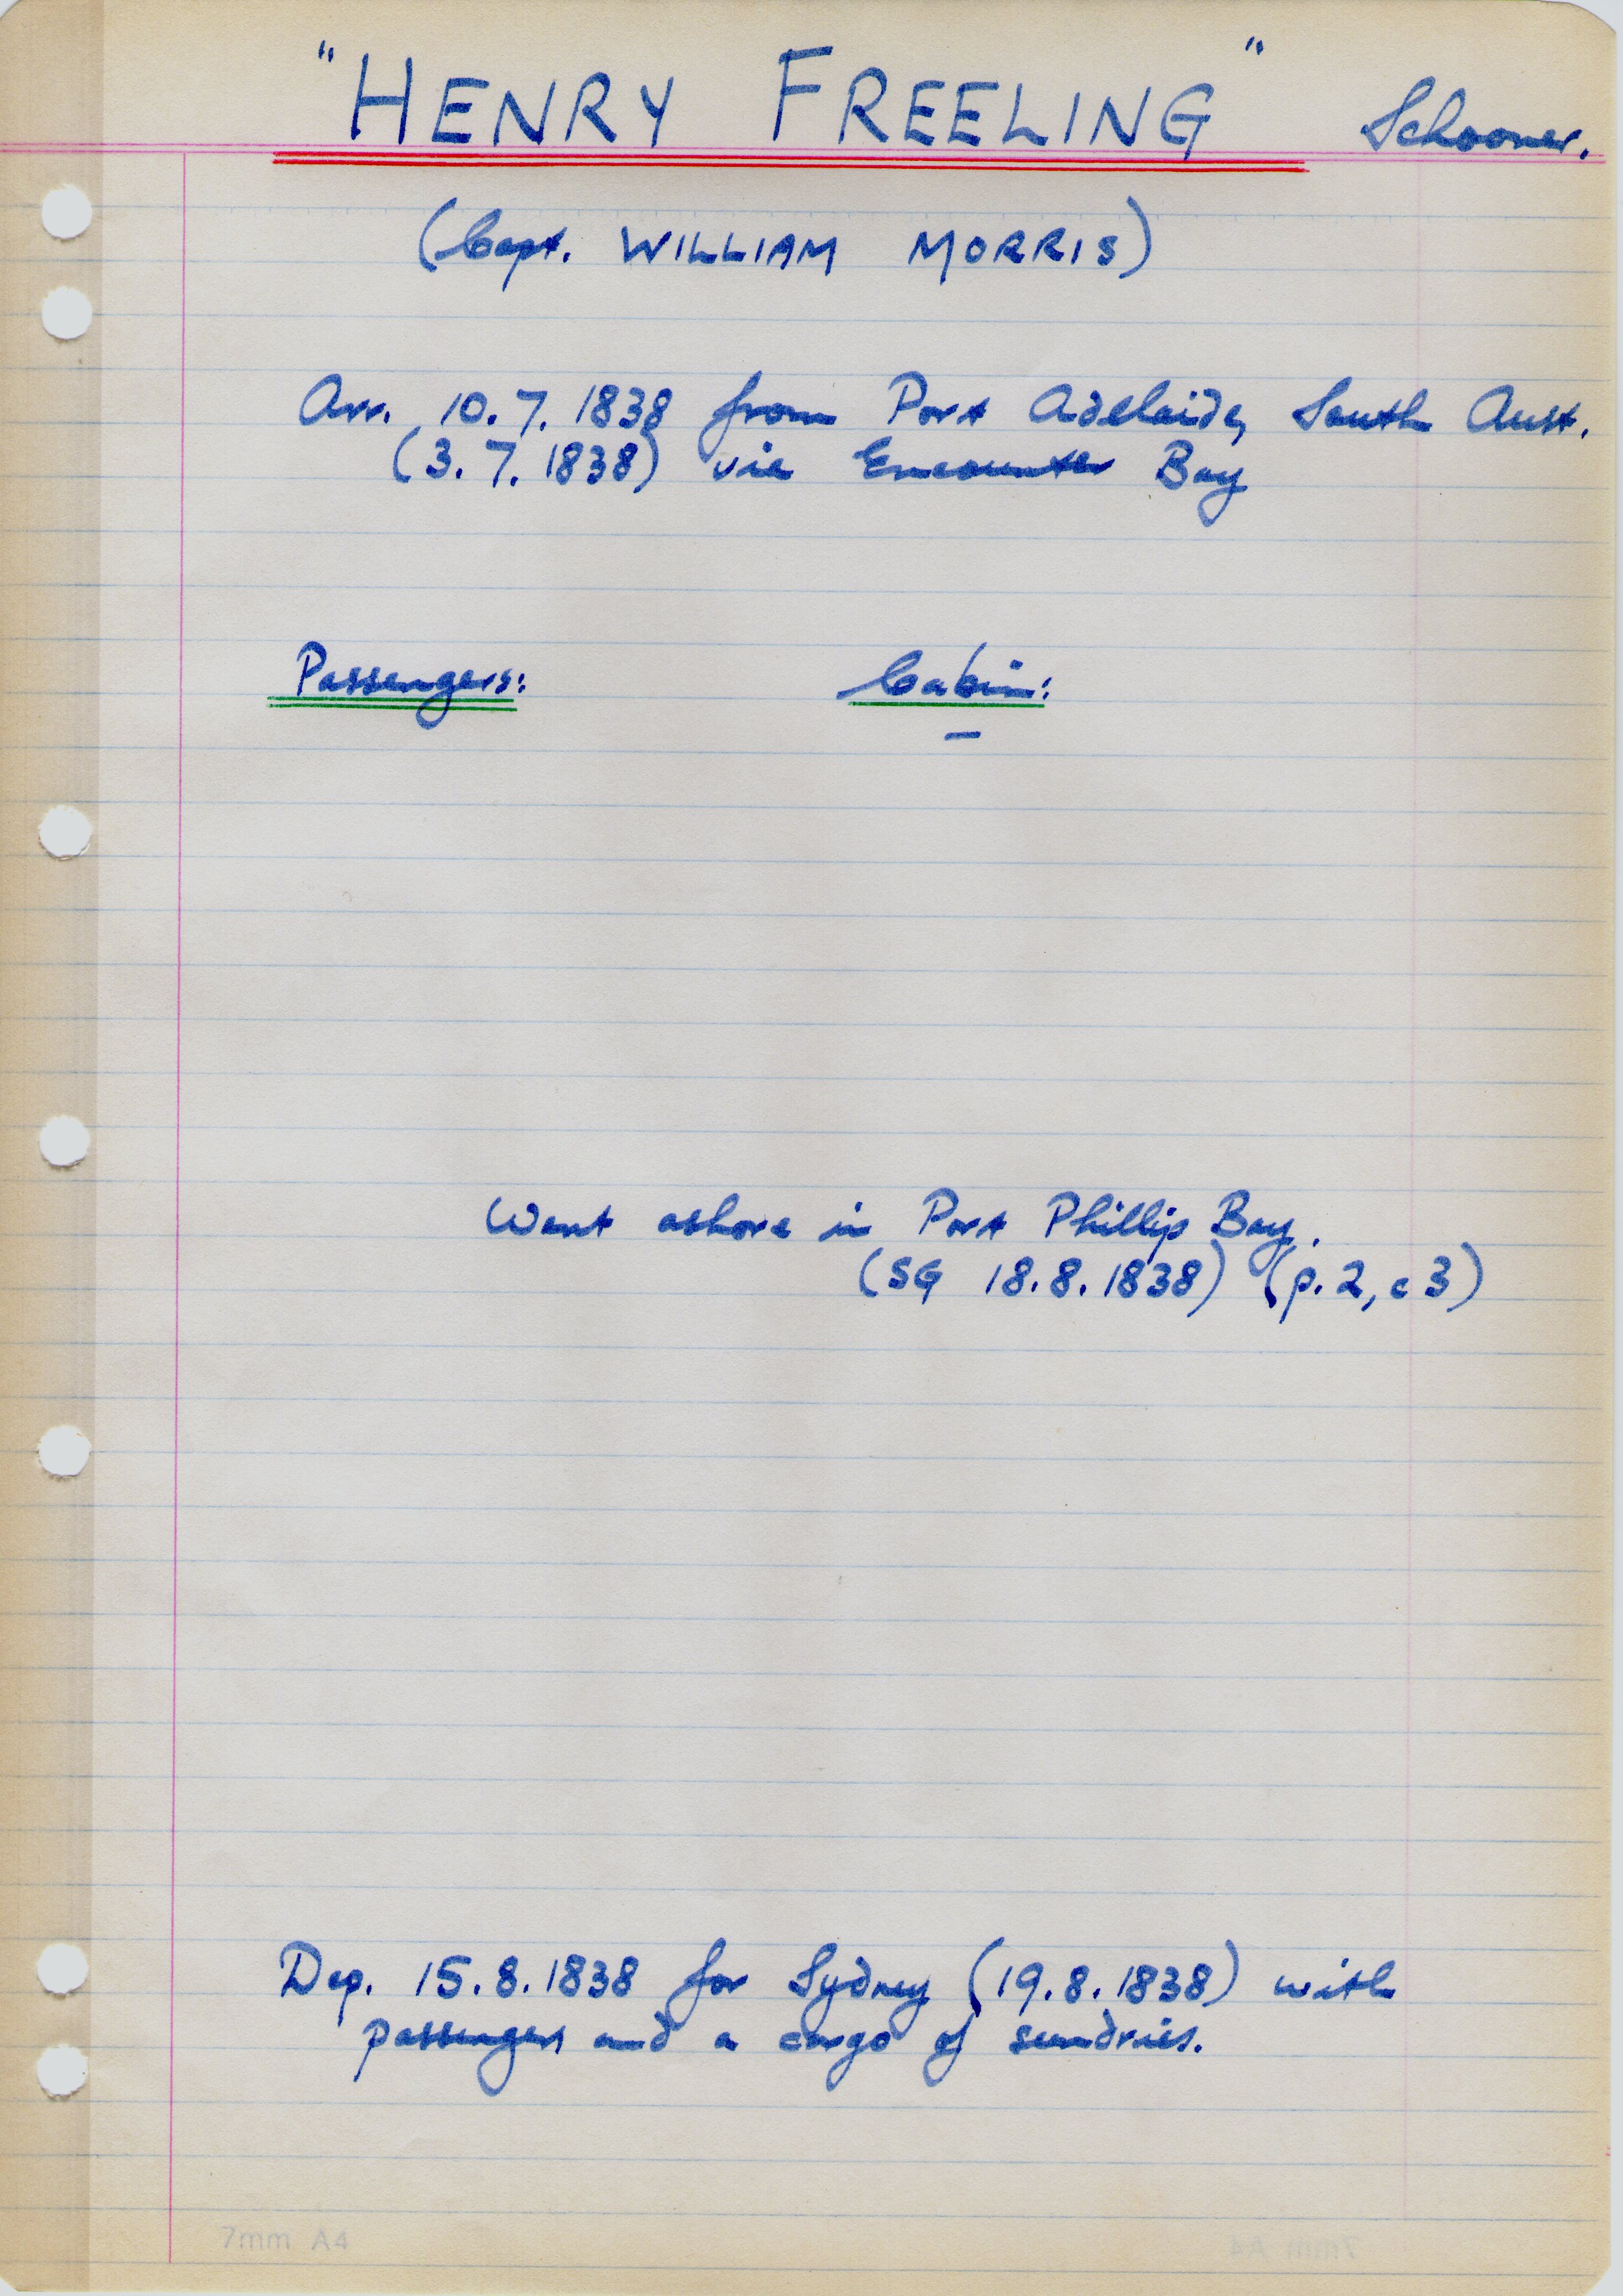 "HENRY FREELING" Schooner.
(Capt. WILLIAM MORRIS)
Arr. 10.7.1838 from Port Adelaide, South Aust.
(3.7.1838) via Encounter Bay
Passengers: Cabin:
—
Went ashore in Port Phillip Bay.
(SG 18.8.1838) (p.2, c3)
Dep. 15.8.1838 for Sydney (19.8.1838) with
passengers and a cargo of sundries.
7mm A4